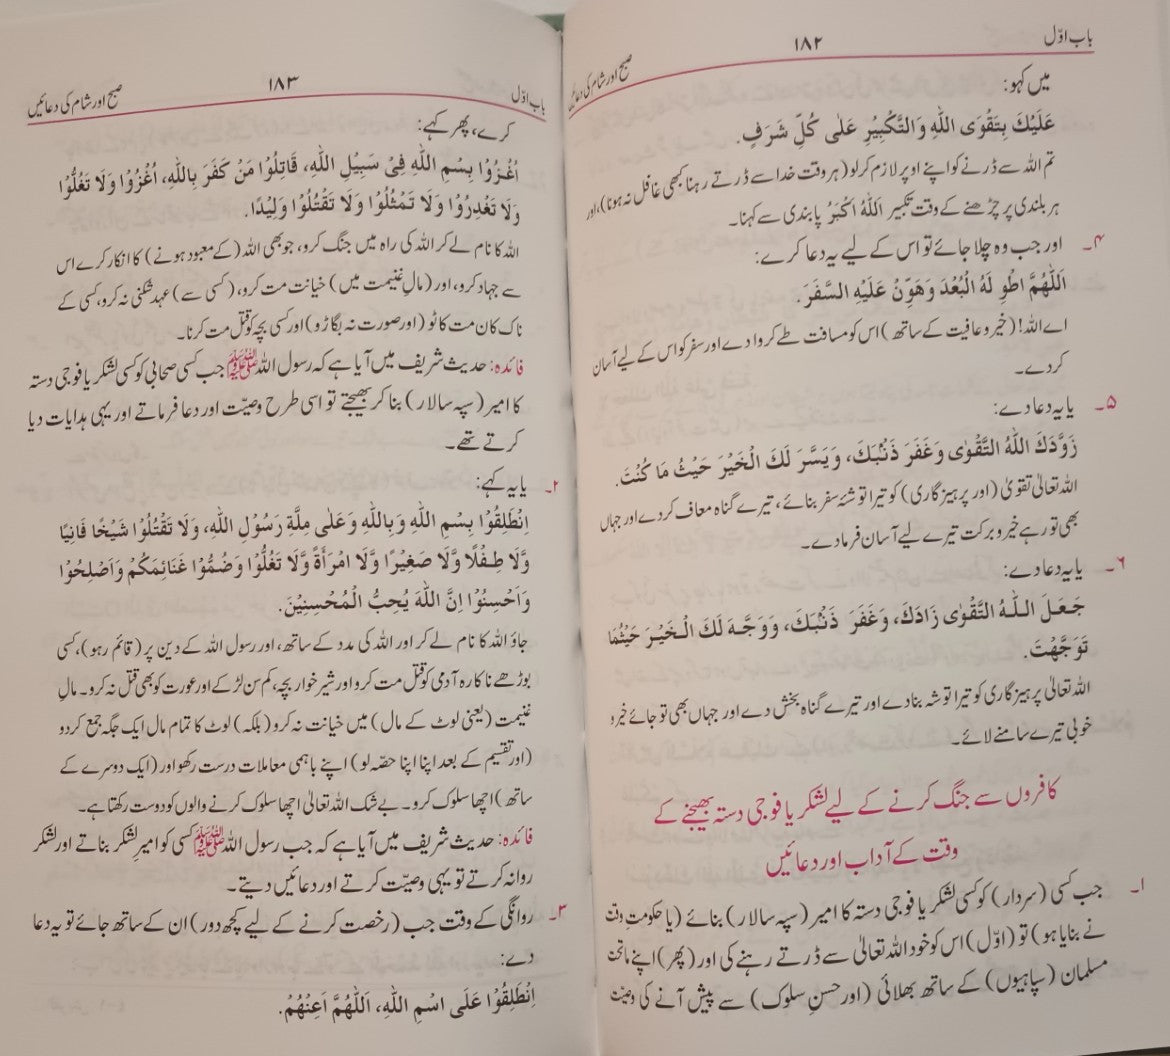 باب اوّل
۱۸۲
صبح اور شام کی دعائیں
میں کہو:
عَلَيْكَ بِتَقْوَى اللّٰهِ وَالتَّكْبِيْرِ عَلٰى كُلِّ شَرَفٍ.
تم اللہ سے ڈرنے کو اپنے اوپر لازم کر لو (ہر وقت خدا سے ڈرتے رہنا کبھی غافل نہ ہونا)، اور
ہر بلندی پر چڑھنے کے وقت تکبیر اَللّٰهُ اَكْبَرُ پابندی سے کہنا۔
۴۔ اور جب وہ چلا جائے تو اس کے لیے یہ دعا کرے:
اَللّٰهُمَّ اطْوِ لَهُ الْبُعْدَ وَهَوِّنْ عَلَيْهِ السَّفَرَ.
اے اللہ! (خیر و عافیت کے ساتھ) اس کو مسافت طے کروا دے اور سفر کو اس کے لیے آسان
کر دے۔
۵۔ یا یہ دعا دے:
زَوَّدَكَ اللّٰهُ التَّقْوٰى وَغَفَرَ ذَنْۢبَكَ، وَيَسَّرَ لَكَ الْخَيْرَ حَيْثُ مَا كُنْتَ.
اللہ تعالیٰ تقویٰ (اور پرہیز گاری) کو تیرا توشۂ سفر بنائے، تیرے گناہ معاف کر دے اور جہاں
بھی تو رہے خیر و برکت تیرے لیے آسان فرما دے۔
۶۔ یا یہ دعا دے:
جَعَلَ اللّٰهُ التَّقْوٰى زَادَكَ، وَغَفَرَ ذَنْۢبَكَ، وَوَجَّهَ لَكَ الْخَيْرَ حَيْثُمَا
تَوَجَّهْتَ.
اللہ تعالیٰ پرہیز گاری کو تیرا توشہ بنا دے اور تیرے گناہ بخش دے اور جہاں بھی تو جائے خیر و
خوبی تیرے سامنے لائے۔
کافروں سے جنگ کرنے کے لیے لشکر یا فوجی دستہ بھیجنے کے
وقت کے آداب اور دعائیں
۱۔ جب کسی (سردار) کو کسی لشکر یا فوجی دستہ کا امیر (سپہ سالار) بنائے (یا حکومتِ وقت
نے بنایا ہو) تو (اوّل) اس کو خود اللہ تعالیٰ سے ڈرتے رہنے کی اور (پھر) اپنے ماتحت
مسلمان (سپاہیوں) کے ساتھ بھلائی (اور حسنِ سلوک) سے پیش آنے کی وصیّت
باب اوّل
۱۸۳
صبح اور شام کی دعائیں
کرے، پھر کہے:
اُغْزُوْا بِسْمِ اللّٰهِ فِيْ سَبِيْلِ اللّٰهِ، قَاتِلُوْا مَنْ كَفَرَ بِاللّٰهِ، اُغْزُوْا وَلَا تَغُلُّوْا
وَلَا تَغْدِرُوْا وَلَا تَمْثُلُوْا وَلَا تَقْتُلُوْا وَلِيْدًا.
اللہ کا نام لے کر اللہ کی راہ میں جنگ کرو، جو بھی اللہ (کے معبود ہونے) کا انکار کرے اس
سے جہاد کرو، اور (مالِ غنیمت میں) خیانت مت کرو، (کسی سے) عہد شکنی نہ کرو، کسی کے
ناک کان مت کاٹو (اور صورت نہ بگاڑو) اور کسی بچہ کو قتل مت کرنا۔
فائدہ: حدیث شریف میں آیا ہے کہ رسول اللہ ﷺ جب کسی صحابی کو کسی لشکر یا فوجی دستہ
کا امیر (سپہ سالار) بنا کر بھیجتے تو اسی طرح وصیّت اور دعا فرماتے اور یہی ہدایات دیا
کرتے تھے۔
۲۔ یا یہ کہے:
اِنْطَلِقُوْا بِسْمِ اللّٰهِ وَبِاللّٰهِ وَعَلٰى مِلَّةِ رَسُوْلِ اللّٰهِ، وَلَا تَقْتُلُوْا شَيْخًا فَانِيًا
وَّلَا طِفْلًا وَّلَا صَغِيْرًا وَّلَا امْرَأَةً وَّلَا تَغُلُّوْا وَضُمُّوْا غَنَائِمَكُمْ وَاَصْلِحُوْا
وَاَحْسِنُوْا اِنَّ اللّٰهَ يُحِبُّ الْمُحْسِنِيْنَ.
جاؤ اللہ کا نام لے کر اور اللہ کی مدد کے ساتھ، اور رسول اللہ کے دین پر (قائم رہو)، کسی
بوڑھے ناکارہ آدمی کو قتل مت کرو اور شیر خوار بچہ، کم سن لڑکے اور عورت کو بھی قتل نہ کرو۔ مالِ
غنیمت (یعنی لوٹ کے مال) میں خیانت نہ کرو (بلکہ) لوٹ کا تمام مال ایک جگہ جمع کر دو
(اور تقسیم کے بعد اپنا اپنا حصّہ لو) اپنے باہمی معاملات درست رکھو اور (ایک دوسرے کے
ساتھ) اچھا سلوک کرو۔ بے شک اللہ تعالیٰ اچھا سلوک کرنے والوں کو دوست رکھتا ہے۔
فائدہ: حدیث شریف میں آیا ہے کہ جب رسول اللہ ﷺ کسی کو امیرِ لشکر بناتے اور لشکر
روانہ کرتے تو یہی وصیّت کرتے اور دعائیں دیتے۔
۳۔ روانگی کے وقت جب (رخصت کرنے کے لیے کچھ دور) ان کے ساتھ جائے تو یہ دعا
دے:
اِنْطَلِقُوْا عَلَى اسْمِ اللّٰهِ، اَللّٰهُمَّ اَعِنْهُمْ.